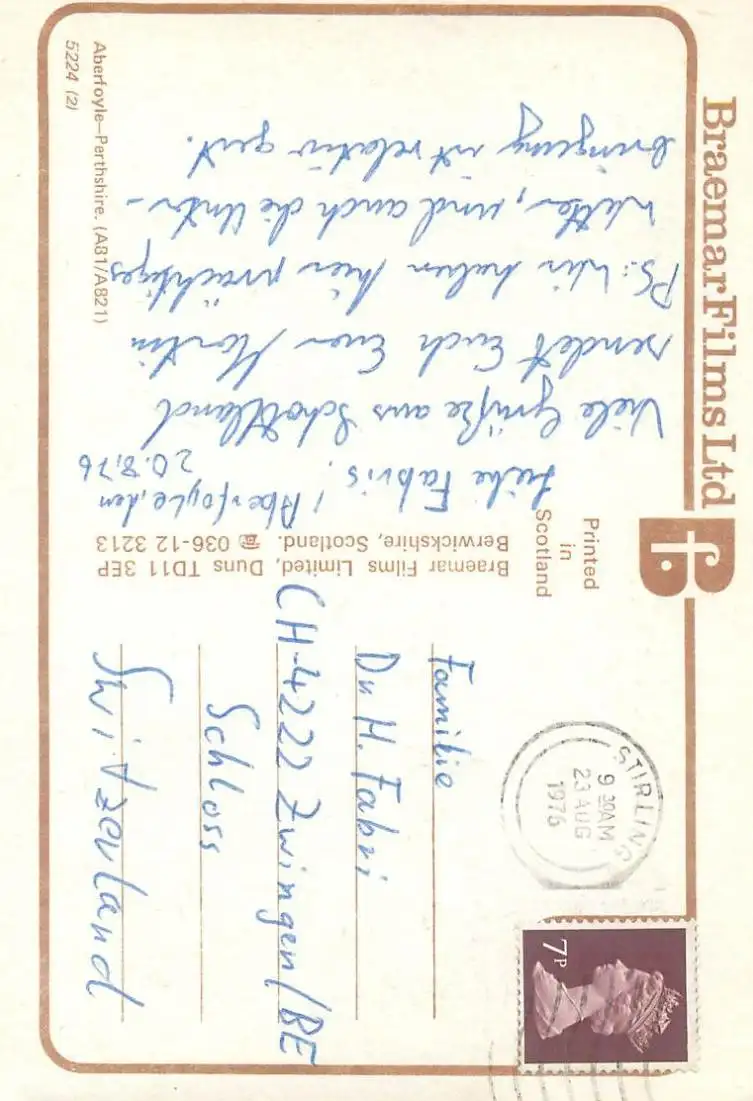 Braemar Films Ltd
Printed
in
Scotland
Aberfoyle–Perthshire. (A81/A821)
5224 (2)
Braemar Films Limited, Duns TD11 3EP
Berwickshire, Scotland. ☎ 036-12 3213
Aberfoyle, den
20.8.76
Liebe Fabris,
Viele Grüße aus Schottland
sendet Euch Euer Martin
PS: Wir haben hier prächtiges
Wetter, und auch die Unter-
bringung ist relativ gut.
STIRLING
9 30AM
23 AUG
1976
7P
Familie
Dr H. Fabri
CH-4222 Zwingen/BE
Schloss
Switzerland